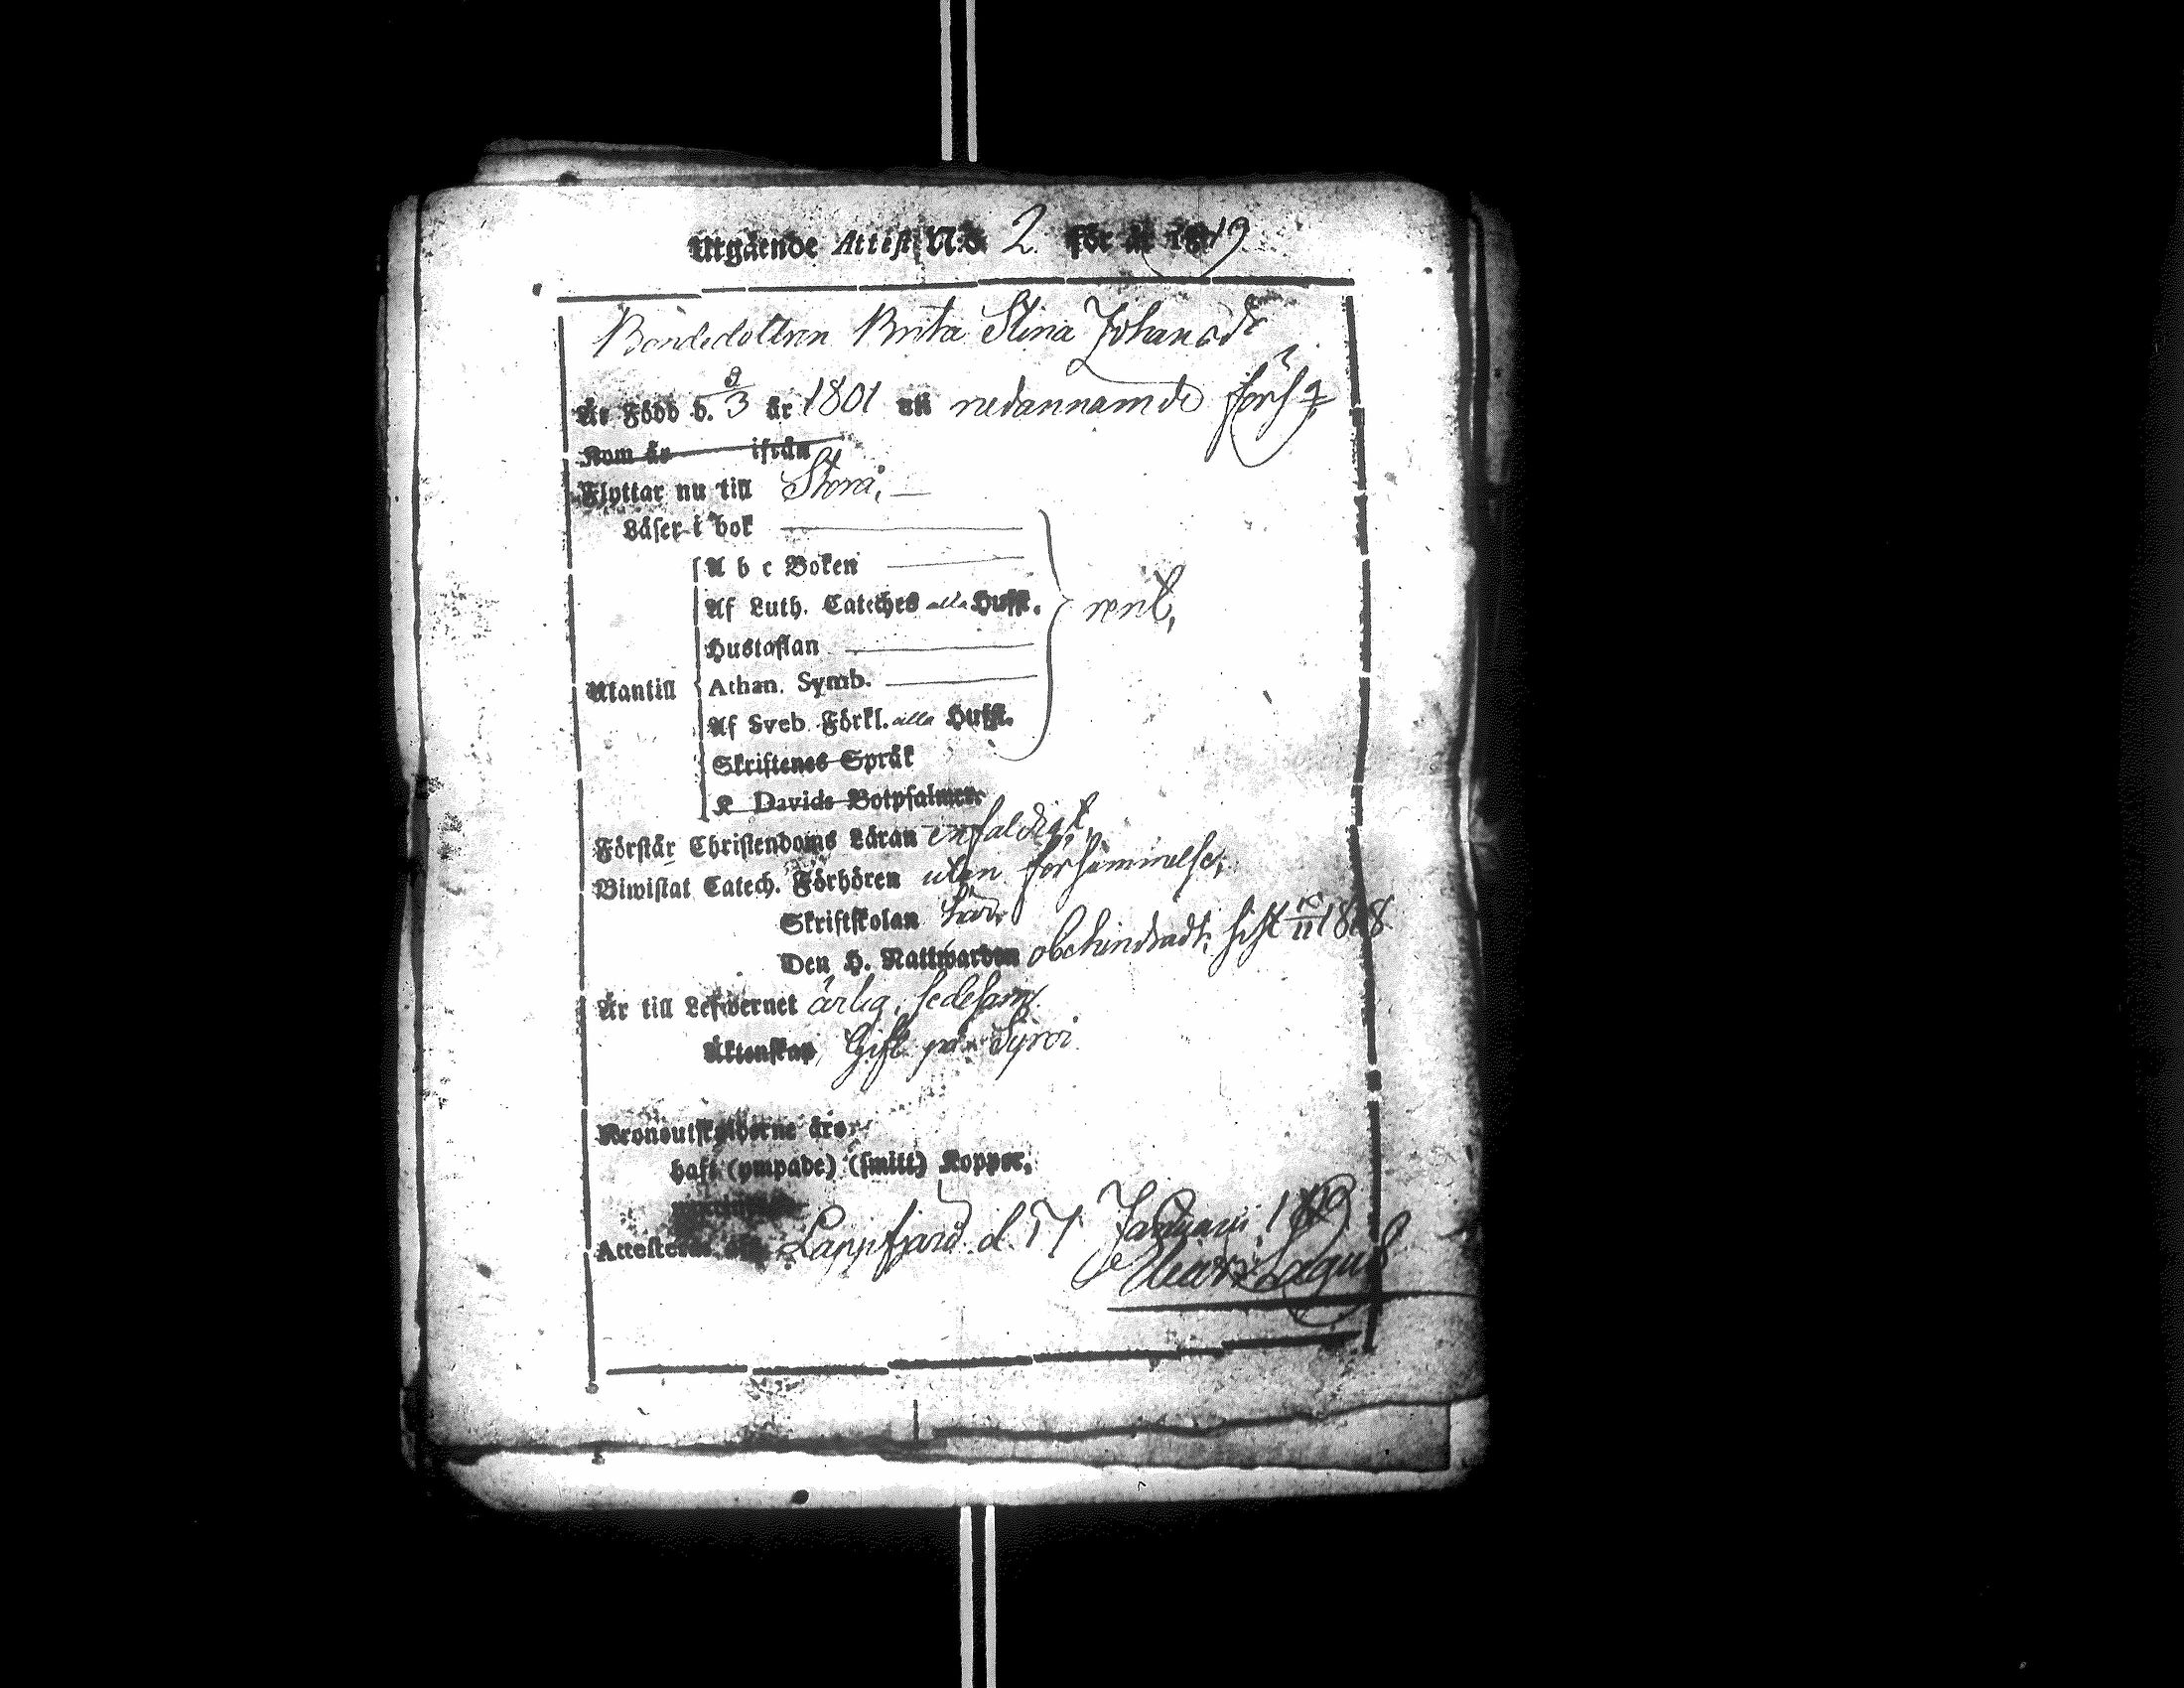 Utgående Attest N:o 2 för år 1819
Bondedottren Brita Stina Johansdr
Är Född d. 8/3 år 1801 uti nedannamde förs:g
Kom år ifrån
Flyttar nu till Storå,
Läser i bok
A b c Boken
Af Luth. Cateches alla Hufst.
rent,
Hustaflan
Utantill
Athan. Symb.
Af Sveb. Förkl. alla Hufst.
Skriftenes Språk
K Davids Botpsalmer.
Förstår Christendoms Läran enfaldigt,
Biwistat Catech. Förhören utan försummelse,
Skriftskolan härs.
Den H. Nattwarden obehindradt, sist 11 1818
Är till Lefwernet ärlig, sedesam
Äktenskap, Gift på
Kronoutskylderne äro
haft (ympade) (smitt) Koppor,
Attesteras af Lappfjärd d. 17 Januari 1819
Elias Lagus